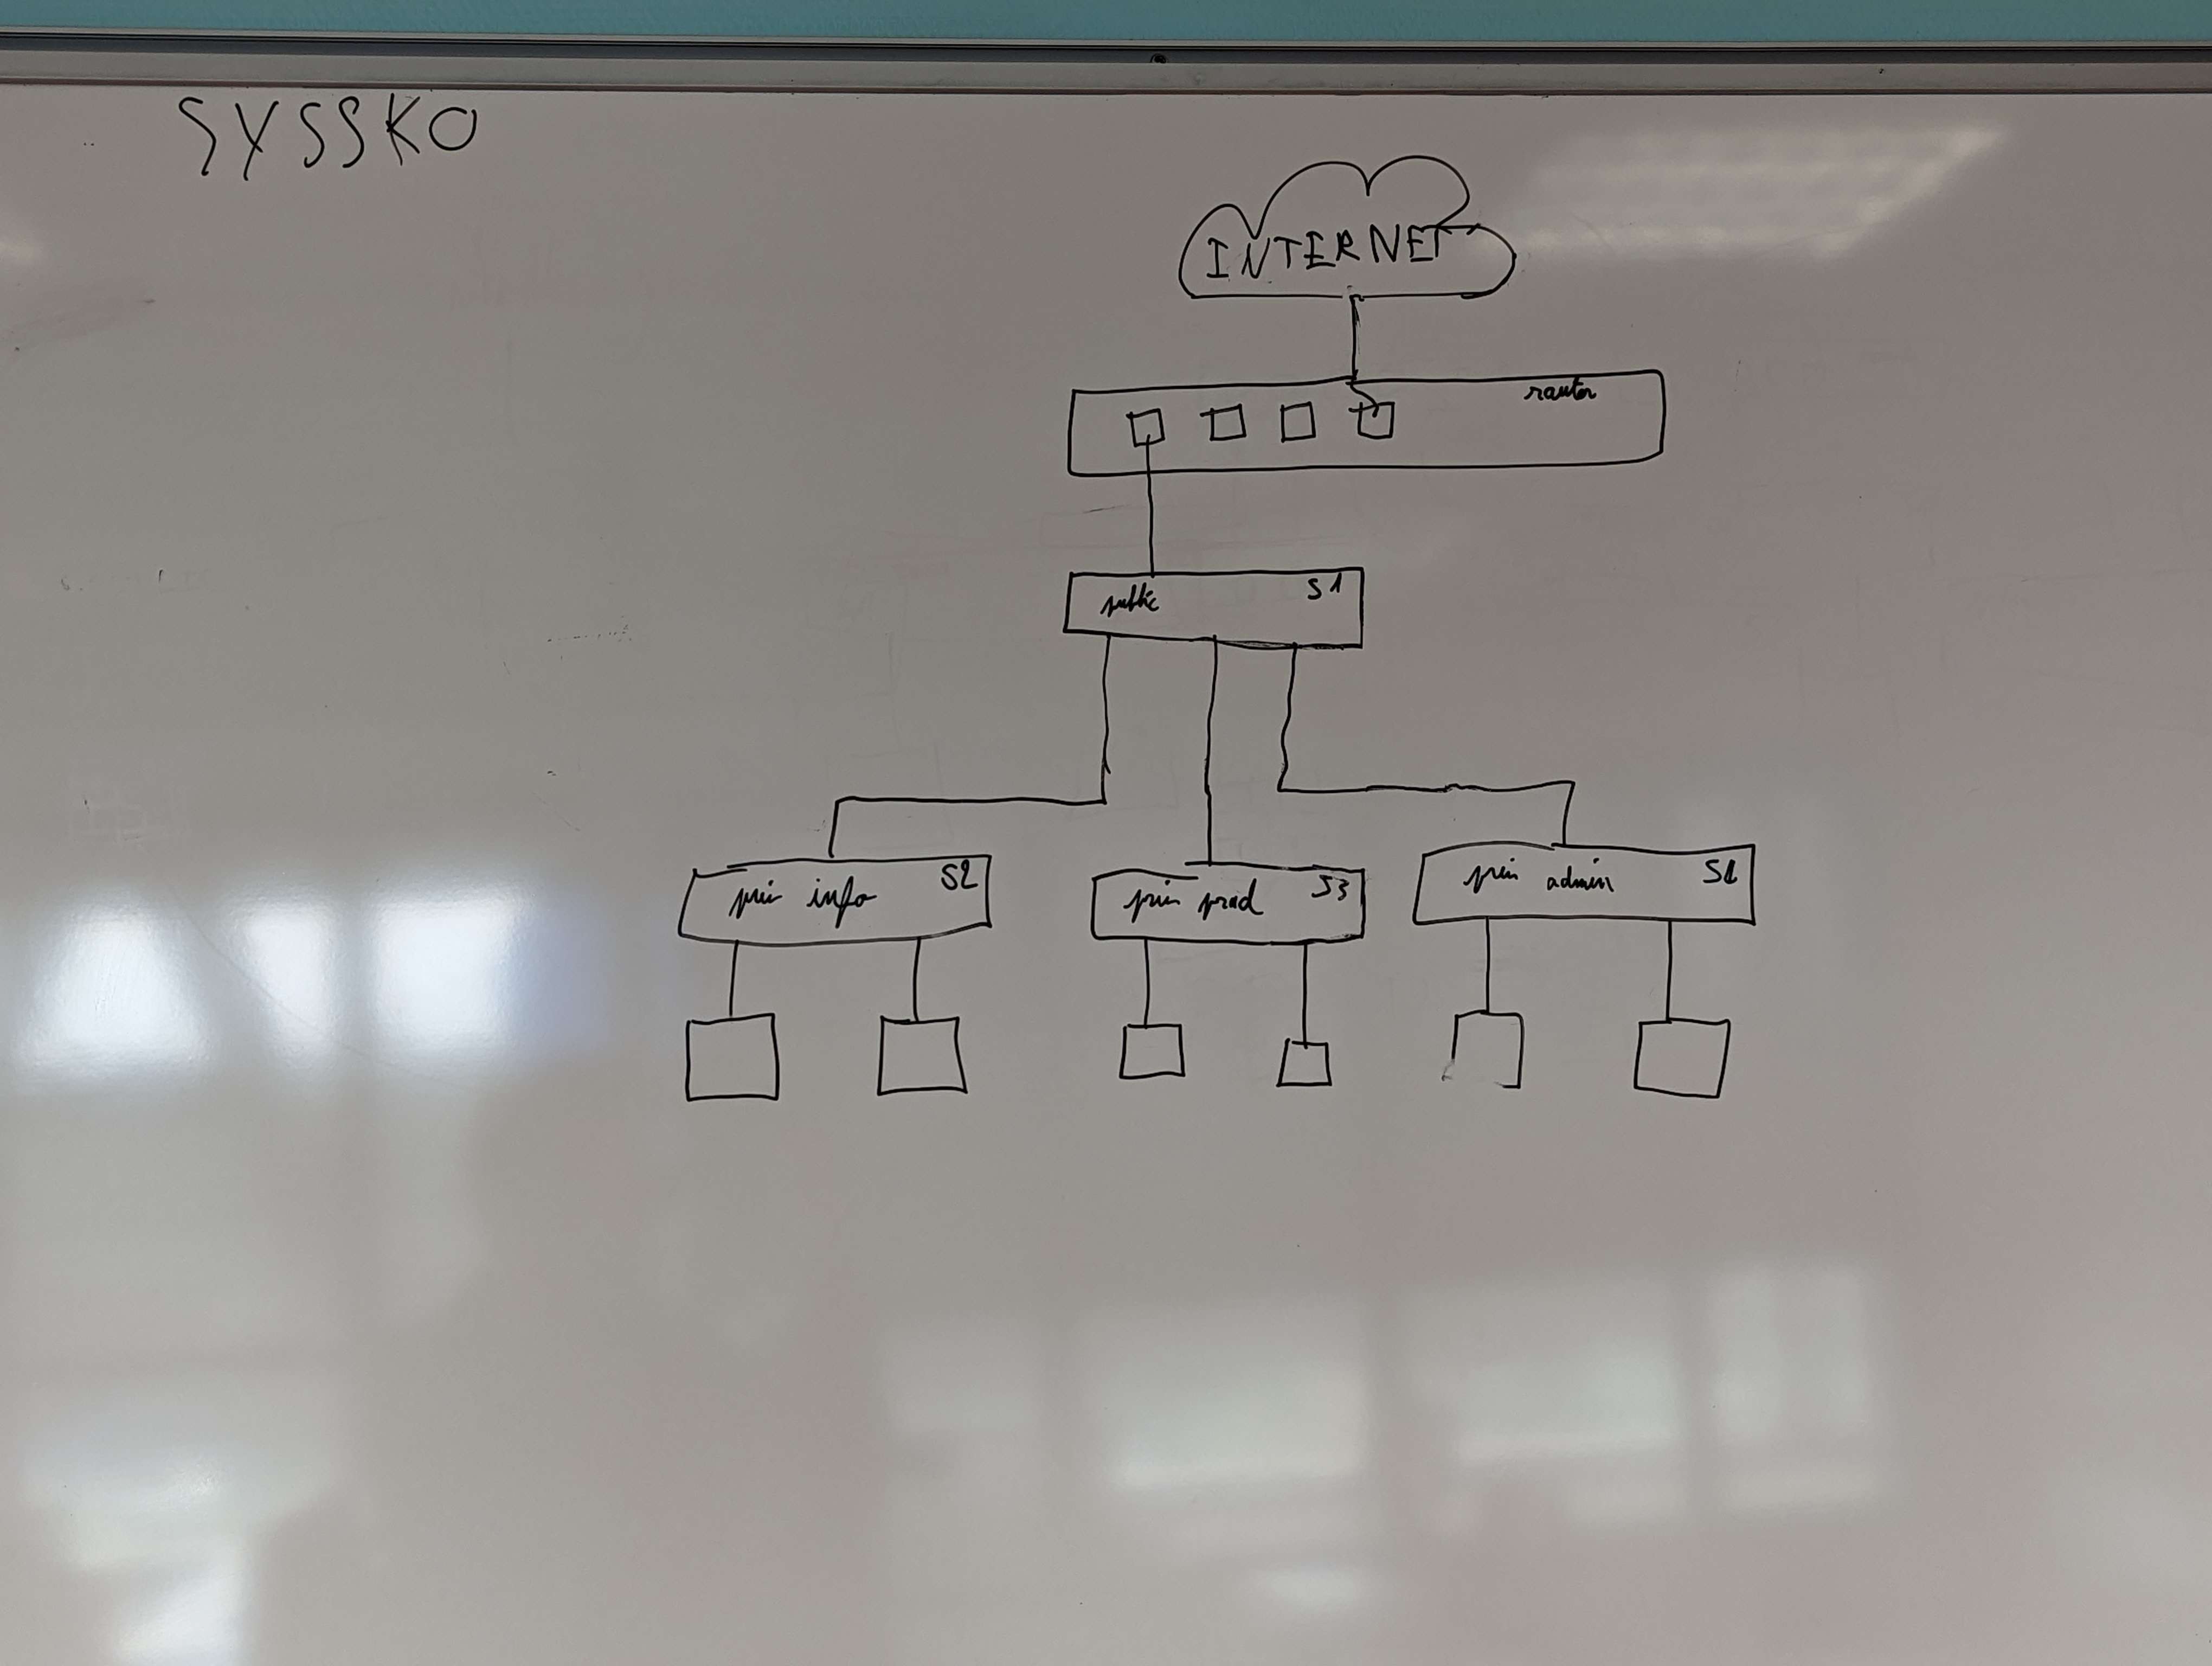 SYSSKO
INTERNET
router
public S1
priv info S2
priv prod S3
priv admin